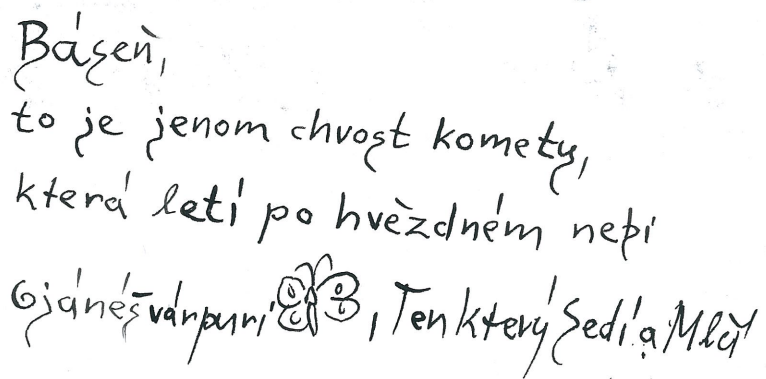 Báseň,
to je jenom chvost komety,
která letí po hvězdném nebi
Gjánéšvárpurí, Ten který Sedí a Mlčí